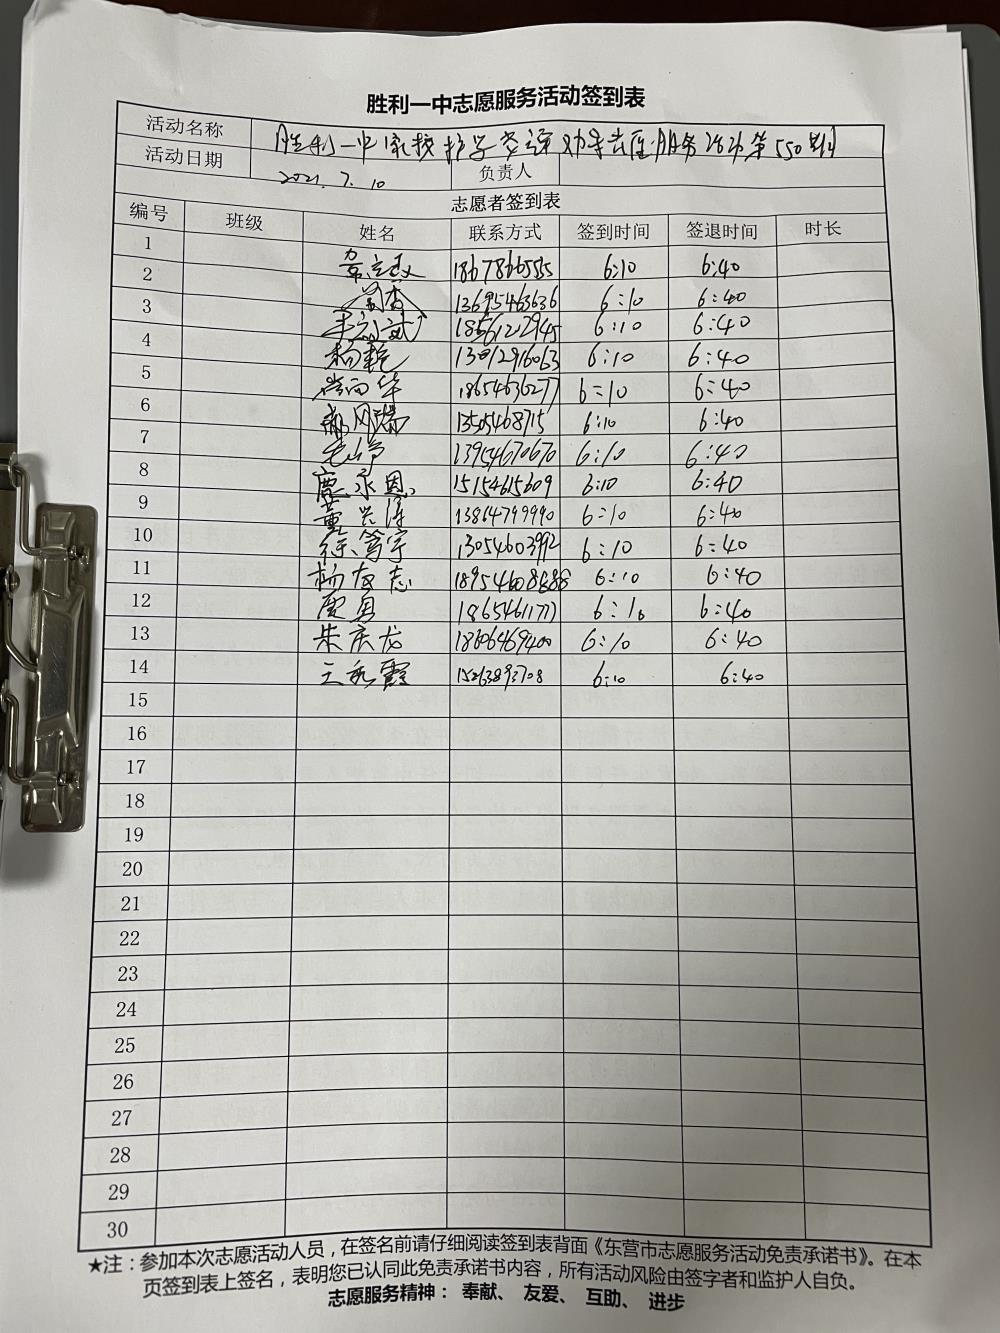 胜利一中志愿服务活动签到表
活动名称 胜利一中家校护学交通劝导志愿服务活动第550期
活动日期 2021.7.10 负责人
志愿者签到表
编号 班级 姓名 联系方式 签到时间 签退时间 时长
1 18678665555 6:10 6:40
2 13695463636 6:10 6:40
3 18561212945 6:10 6:40
4 杨艳 13012916063 6:10 6:40
5 18654636277 6:10 6:40
6 13505468715 6:10 6:40
7 13954670670 6:10 6:40
8 鹿永恩 15154615609 6:10 6:40
9 董兴涛 13864799990 6:10 6:40
10 徐笃宇 13054603992 6:10 6:40
11 杨友志 18954608888 6:10 6:40
12 贾勇 18654611777 6:10 6:40
13 朱庆龙 18606469400 6:10 6:40
14 王彩霞 15263893708 6:10 6:40
15
16
17
18
19
20
21
22
23
24
25
26
27
28
29
30
★注：参加本次志愿活动人员，在签名前请仔细阅读签到表背面《东营市志愿服务活动免责承诺书》。在本
页签到表上签名，表明您已认同此免责承诺书内容，所有活动风险由签字者和监护人自负。
志愿服务精神： 奉献、 友爱、 互助、 进步